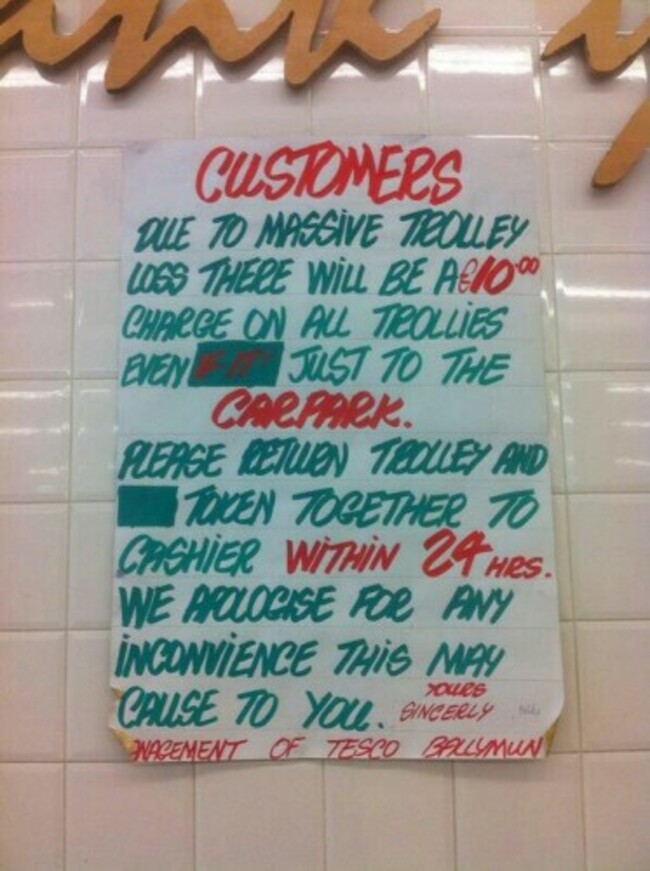 CUSTOMERS
DUE TO MASSIVE TROLLEY
LOSS THERE WILL BE A £10.00
CHARGE ON ALL TROLLIES
EVEN IF IT'S JUST TO THE
CARPARK.
PLEASE RETURN TROLLEY AND
TOKEN TOGETHER TO
CASHIER WITHIN 24 HRS.
WE APOLOGISE FOR ANY
INCONVIENCE THIS MAY
CAUSE TO YOU. YOURS
SINCERLY
ANAGEMENT OF TESCO BALLYMUN